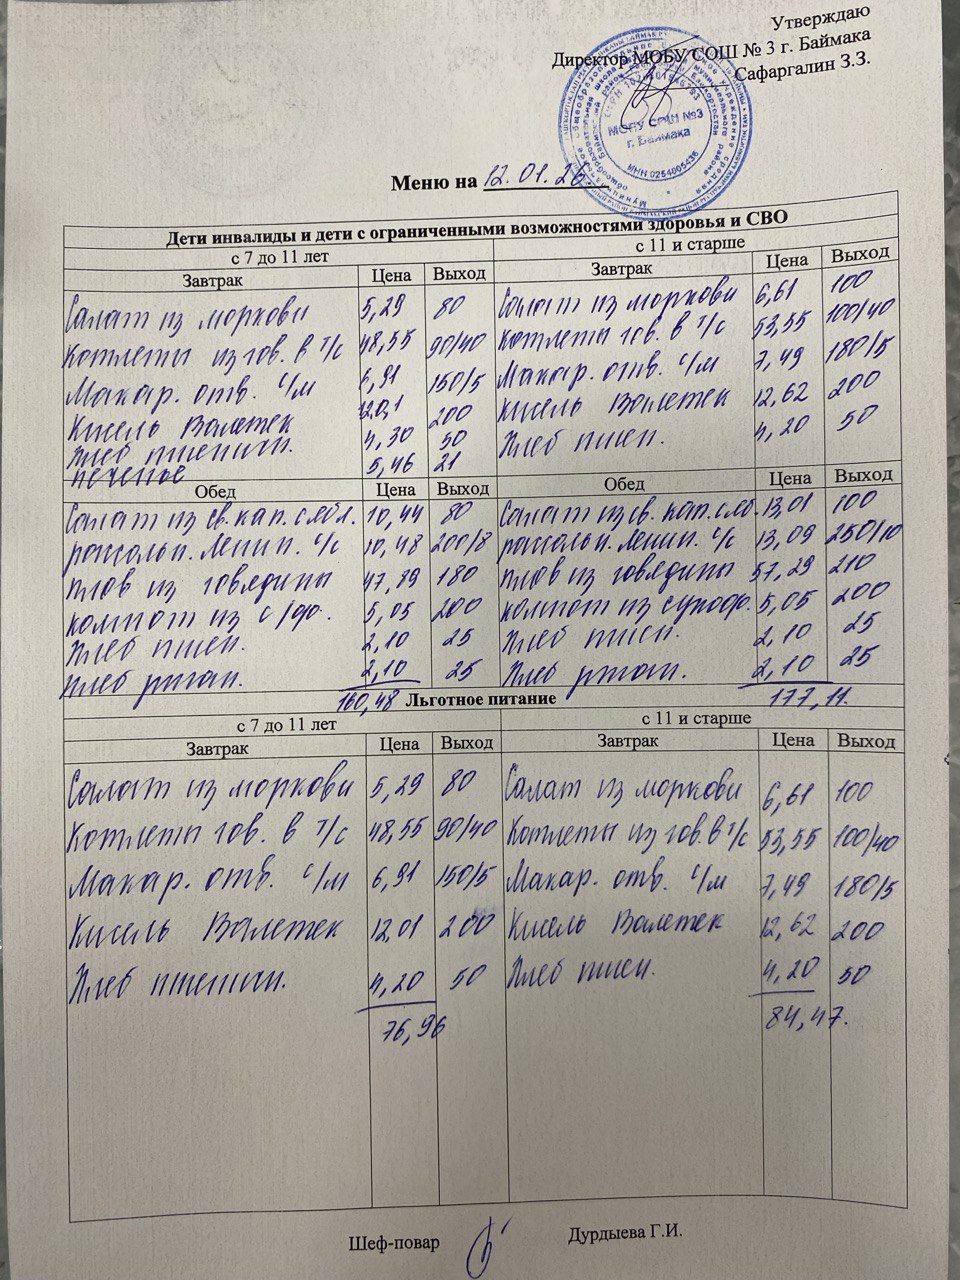 Утверждаю
Директор МОБУ СОШ № 3 г. Баймака
Сафаргалин З.З.
МОБУ СОШ №3
г. Баймака
ИНН 0254005436
Меню на 12.01.26.
Дети инвалиды и дети с ограниченными возможностями здоровья и СВО
с 7 до 11 лет с 11 и старше
Завтрак Цена Выход Завтрак Цена Выход
Салат из моркови 5,29 80 Салат из моркови 6,61 100
Котлеты из гов. в т/с 48,55 90/40 Котлеты гов. в т/с 53,55 100/40
Макар. отв. с/м 6,91 150/5 Макар. отв. с/м 7,49 180/5
Кисель Валетек 12,01 200 Кисель Валетек 12,62 200
Хлеб пшенич. 4,30 50 Хлеб пшен. 4,20 50
печенье 5,46 21
Обед Цена Выход Обед Цена Выход
Салат из св. кап. с ябл. 10,44 80 Салат из св. кап. с яб. 13,01 100
рассольн. Ленин. с/с 10,48 200/8 рассольн. Ленин. с/с 13,09 250/10
Плов из говядины 47,89 180 Плов из говядины 57,29 210
компот из с/фр. 5,05 200 компот из сухофр. 5,05 200
Хлеб пшен. 2,10 25 Хлеб пшен. 2,10 25
Хлеб ржан. 2,10 25 Хлеб ржан. 2,10 25
160,48 177,11.
Льготное питание
с 7 до 11 лет с 11 и старше
Завтрак Цена Выход Завтрак Цена Выход
Салат из моркови 5,29 80 Салат из моркови 6,61 100
Котлеты гов. в т/с 48,55 90/40 Котлеты из гов. в т/с 53,55 100/40
Макар. отв. с/м 6,91 150/5 Макар. отв. с/м 7,49 180/5
Кисель Валетек 12,01 200 Кисель Валетек 12,62 200
Хлеб пшенич. 4,20 50 Хлеб пшен. 4,20 50
76,96 84,47.
Шеф-повар Дурдыева Г.И.